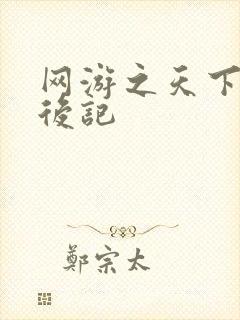 网游之天下
後記
鄭宗太